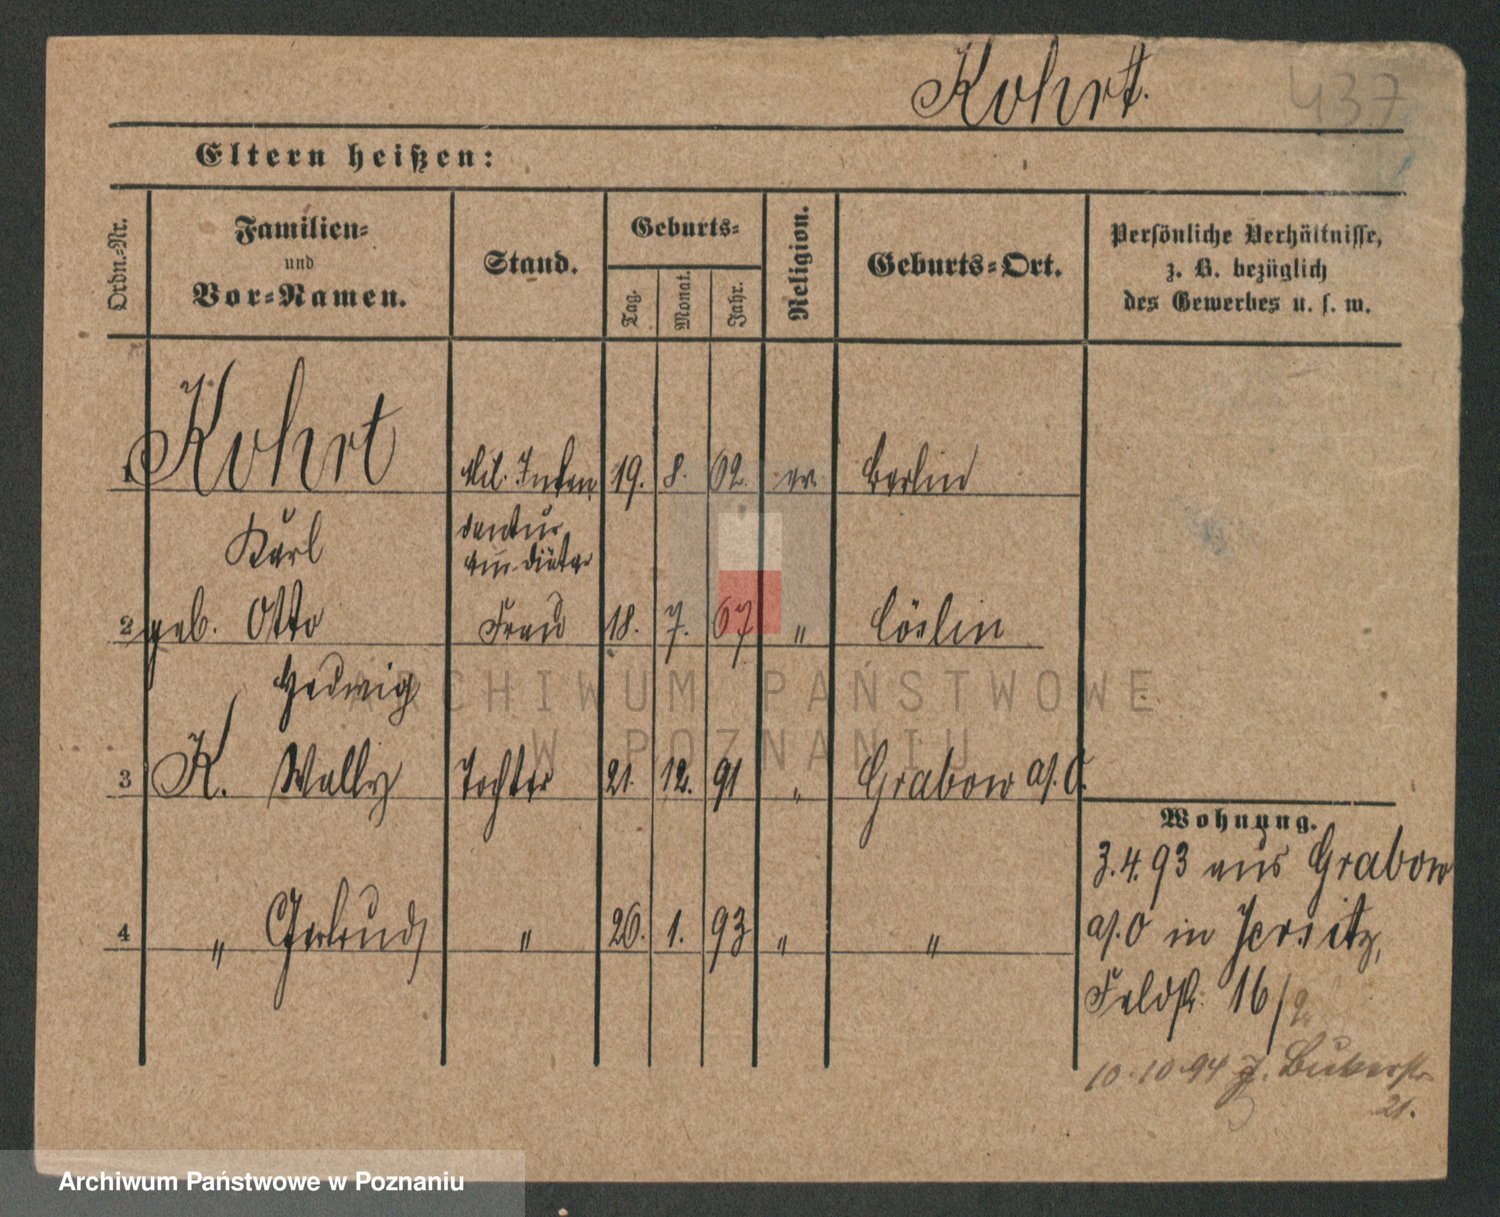 Kohrt.
437
Eltern heißen:
Ordn.-Nr.
Familien-
und
Vor-Namen.
Stand.
Geburts-
Tag.
Monat.
Jahr.
Religion.
Geburts-Ort.
Persönliche Verhältnisse,
z. B. bezüglich
des Gewerbes u. s. w.
1 Kohrt Mil. Inten 19. 8. 62. ev. Berlin
Karl dantur
diätar
2 geb. Otto Frau 18. 7. 67 " Cöslin
Hedwig
3 K. Wally Tochter 21. 12. 91 " Grabow a/O.
4 " Gertrud " 26. 1. 93 " "
Wohnung.
3.4.93 aus Grabow
a/O in Jersitz,
Feldstr. 16/
10.10.94 J.
21.
ARCHIWUM PAŃSTWOWE
W POZNANIU
Archiwum Państwowe w Poznaniu